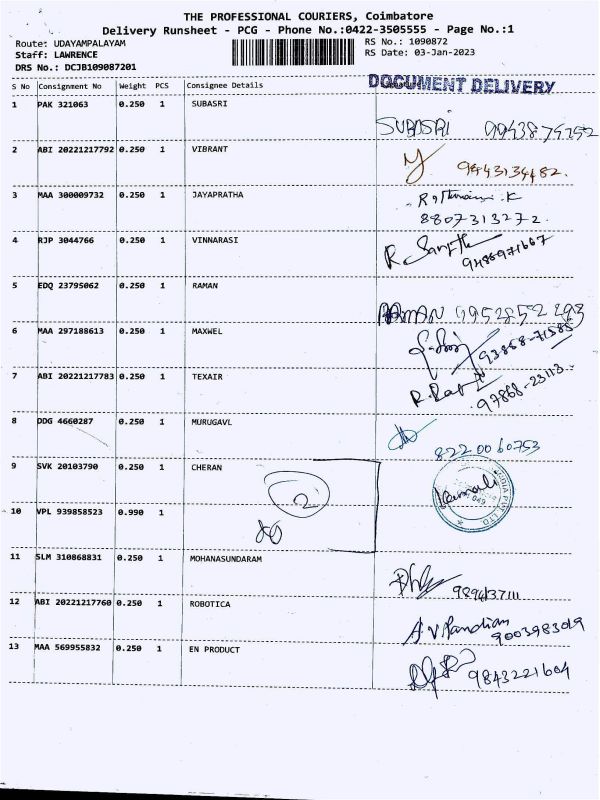 THE PROFESSIONAL COURIERS, Coimbatore
Delivery Runsheet - PCG - Phone No.:0422-3505555 - Page No.:1
Route: UDAYAMPALAYAM
RS No.: 1090872
Staff: LAWRENCE
RS Date: 03-Jan-2023
DRS No.: DCJB109087201
DOCUMENT DELIVERY
S No Consignment No Weight PCS Consignee Details
1 PAK 321063 0.250 1 SUBASRI
SUBASRI
2 ABI 20221217792 0.250 1 VIBRANT
9843134482.
3 MAA 300009732 0.250 1 JAYAPRATHA
8807313272.
4 RJP 3044766 0.250 1 VINNARASI
9486971667
5 EDQ 23795062 0.250 1 RAMAN
RAMAN 9952852293
6 MAA 297188613 0.250 1 MAXWEL
93858-71585
7 ABI 20221217783 0.250 1 TEXAIR
97868-23113
8 DDG 4660287 0.250 1 MURUGAVL
8220060753
9 SVK 20103790 0.250 1 CHERAN
2
10 VPL 939858523 0.990 1
11 SLM 310868831 0.250 1 MOHANASUNDARAM
12 ABI 20221217760 0.250 1 ROBOTICA
A.V.Pandian
900398309
13 MAA 569955832 0.250 1 EN PRODUCT
9843221604